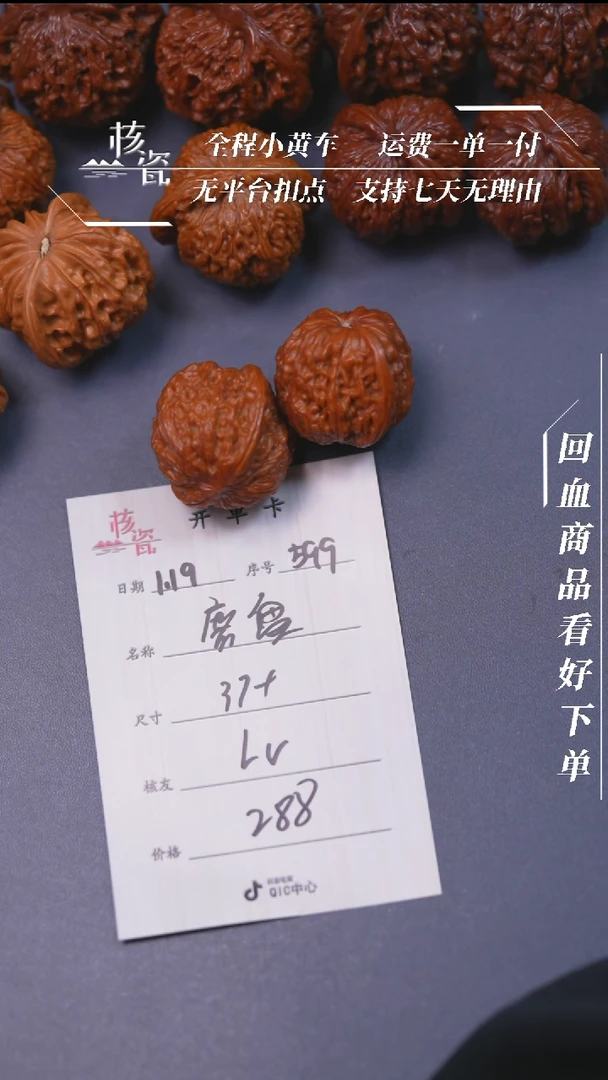 核瓷
全程小黄车 运费一单一付
无平台扣点 支持七天无理由
回血商品看好下单
核瓷
开单卡
日期 1.19 序号 599
名称 磨盘
尺寸 37+
核友 Lv
价格 288
抖音电商
QIC中心